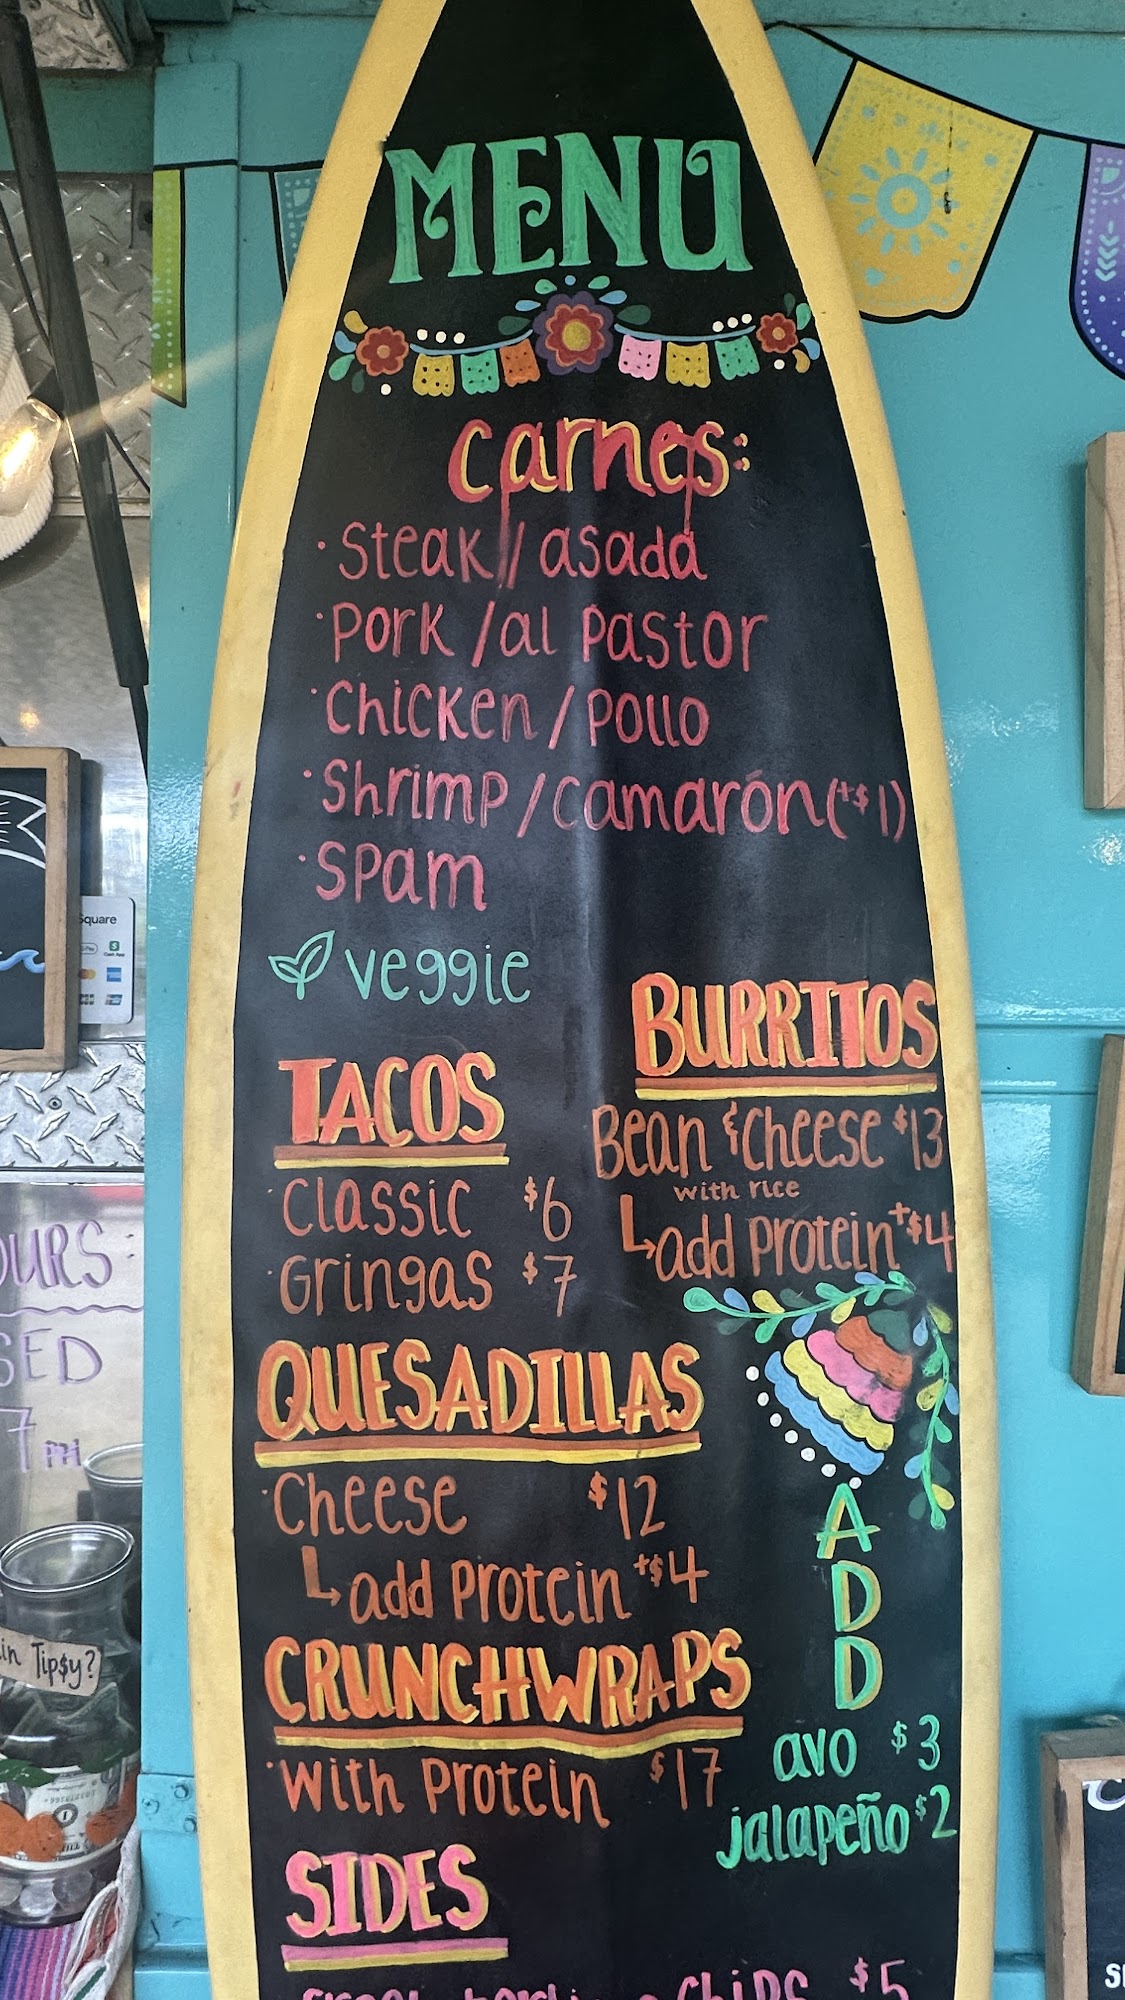 MENU
carnes:
· Steak / asada
· Pork / al Pastor
· Chicken / Pollo
· Shrimp / Camarón (+$1)
· Spam
veggie
BURRITOS
Bean & Cheese $13
with rice
add Protein +$4
TACOS
· Classic $6
· Gringas $7
QUESADILLAS
· Cheese $12
add Protein +$4
CRUNCHWRAPS
· with Protein $17
ADD
avo $3
jalapeño $2
SIDES
Chips $5
Square
Pay
Cash App
7 PM
Tip$y?